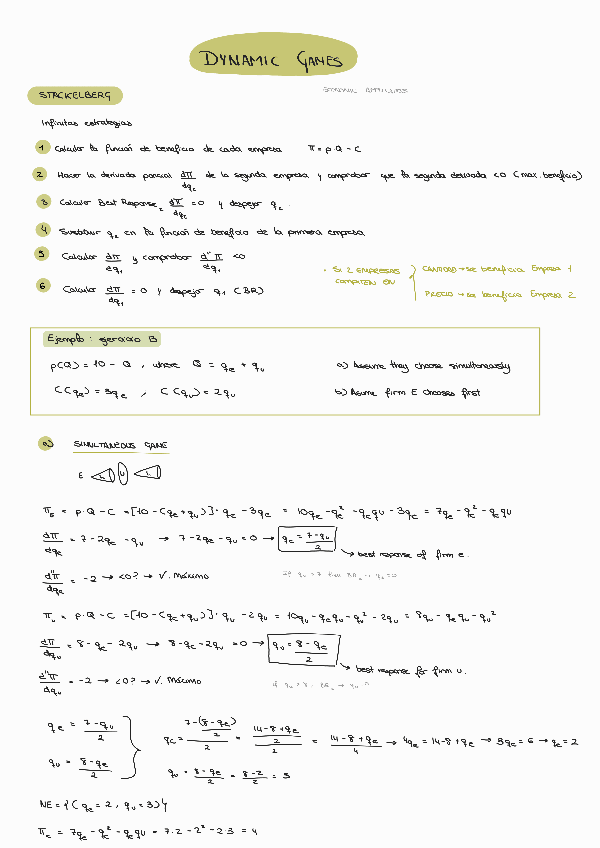 DYNAMIC GAMES
STACKELBERG
Infinitas estrategias
1 Calcular la función de beneficio de cada empresa π = p·Q - C
2 Hacer la derivada parcial dπ/dq₂ de la segunda empresa y comprobar que la segunda derivada <0 (max. beneficio)
3 Calcular Best Response₂ dπ/dq₂ = 0 y despejar q₂.
4 Sustituir q₂ en la función de beneficio de la primera empresa
5 Calcular dπ/dq₁ y comprobar d''π/dq₁ <0
6 Calcular dπ/dq₁ = 0 y despejar q₁ (BR)
· Si 2 EMPRESAS COMPITEN EN
CANTIDAD → se beneficia Empresa 1
PRECIO → se beneficia Empresa 2
Ejemplo: B
p(Q) = 10 - Q , where Q = qe + qu
C(qe) = 3qe , C(qu) = 2qu
a) Assume they choose simultaneously
b) Assume firm E chooses first
a) SIMULTANEOUS GAME
E U
πE = p·Q - C = [10 - (qe + qu)]·qe - 3qe = 10qe - qe² - qequ - 3qe = 7qe - qe² - qequ
dπ/dqe = 7 - 2qe - qu → 7 - 2qe - qu = 0 → qe = (7 - qu)/2
best response of firm e.
d''π/dqe = -2 → <0? → √. Máximo
πu = p·Q - C = [10 - (qe + qu)]·qu - 2qu = 10qu - qequ - qu² - 2qu = 8qu - qequ - qu²
dπ/dqu = 8 - qe - 2qu → 8 - qe - 2qu = 0 → qu = (8 - qe)/2
best response for firm u.
d''π/dqu = -2 → <0? → √. Máximo
qe = (7 - qu)/2
qu = (8 - qe)/2
qe = (7 - (8 - qe)/2)/2 = ((14 - 8 + qe)/2)/2 = (14 - 8 + qe)/4 → 4qe = 14 - 8 + qe → 3qe = 6 → qe = 2
qu = (8 - qe)/2 = (8 - 2)/2 = 3
NE = {(qe = 2, qu = 3)}
πe = 7qe - qe² - qequ = 7·2 - 2² - 2·3 = 4